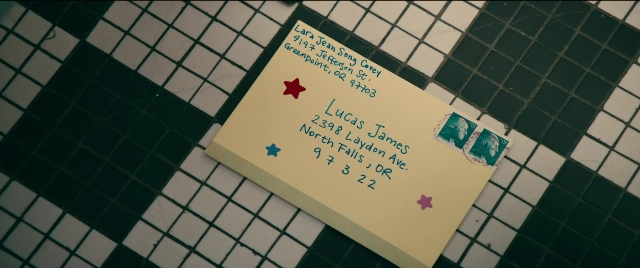 Lara Jean Song Covey
9197 Jefferson St.
Greenpoint, OR 97103
Lucas James
2398 Laydon Ave.
North Falls, OR
97322